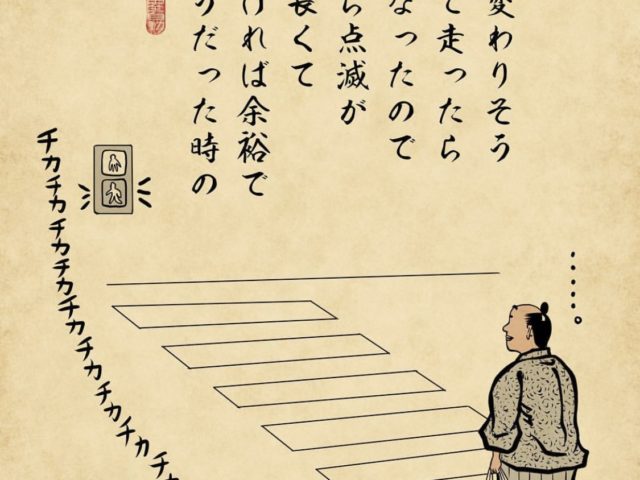 変わりそう
て走ったら
なったので
ら点滅が
長くて
ければ余裕で
りだった時の
チカチカチカチカチカチカチカチカチ
……。